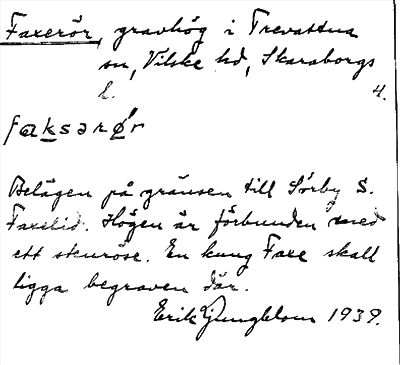 Faxerör, gravhög i Trevattna
sn, Vilske hd, Skaraborgs
l. 4.
faksərø̀r
Belägen på gränsen till Sörby S.
Faxelid. Högen är förbunden med
ett stenröse. En kung Faxe skall
ligga begraven där.
Erik Ljungblom 1939.